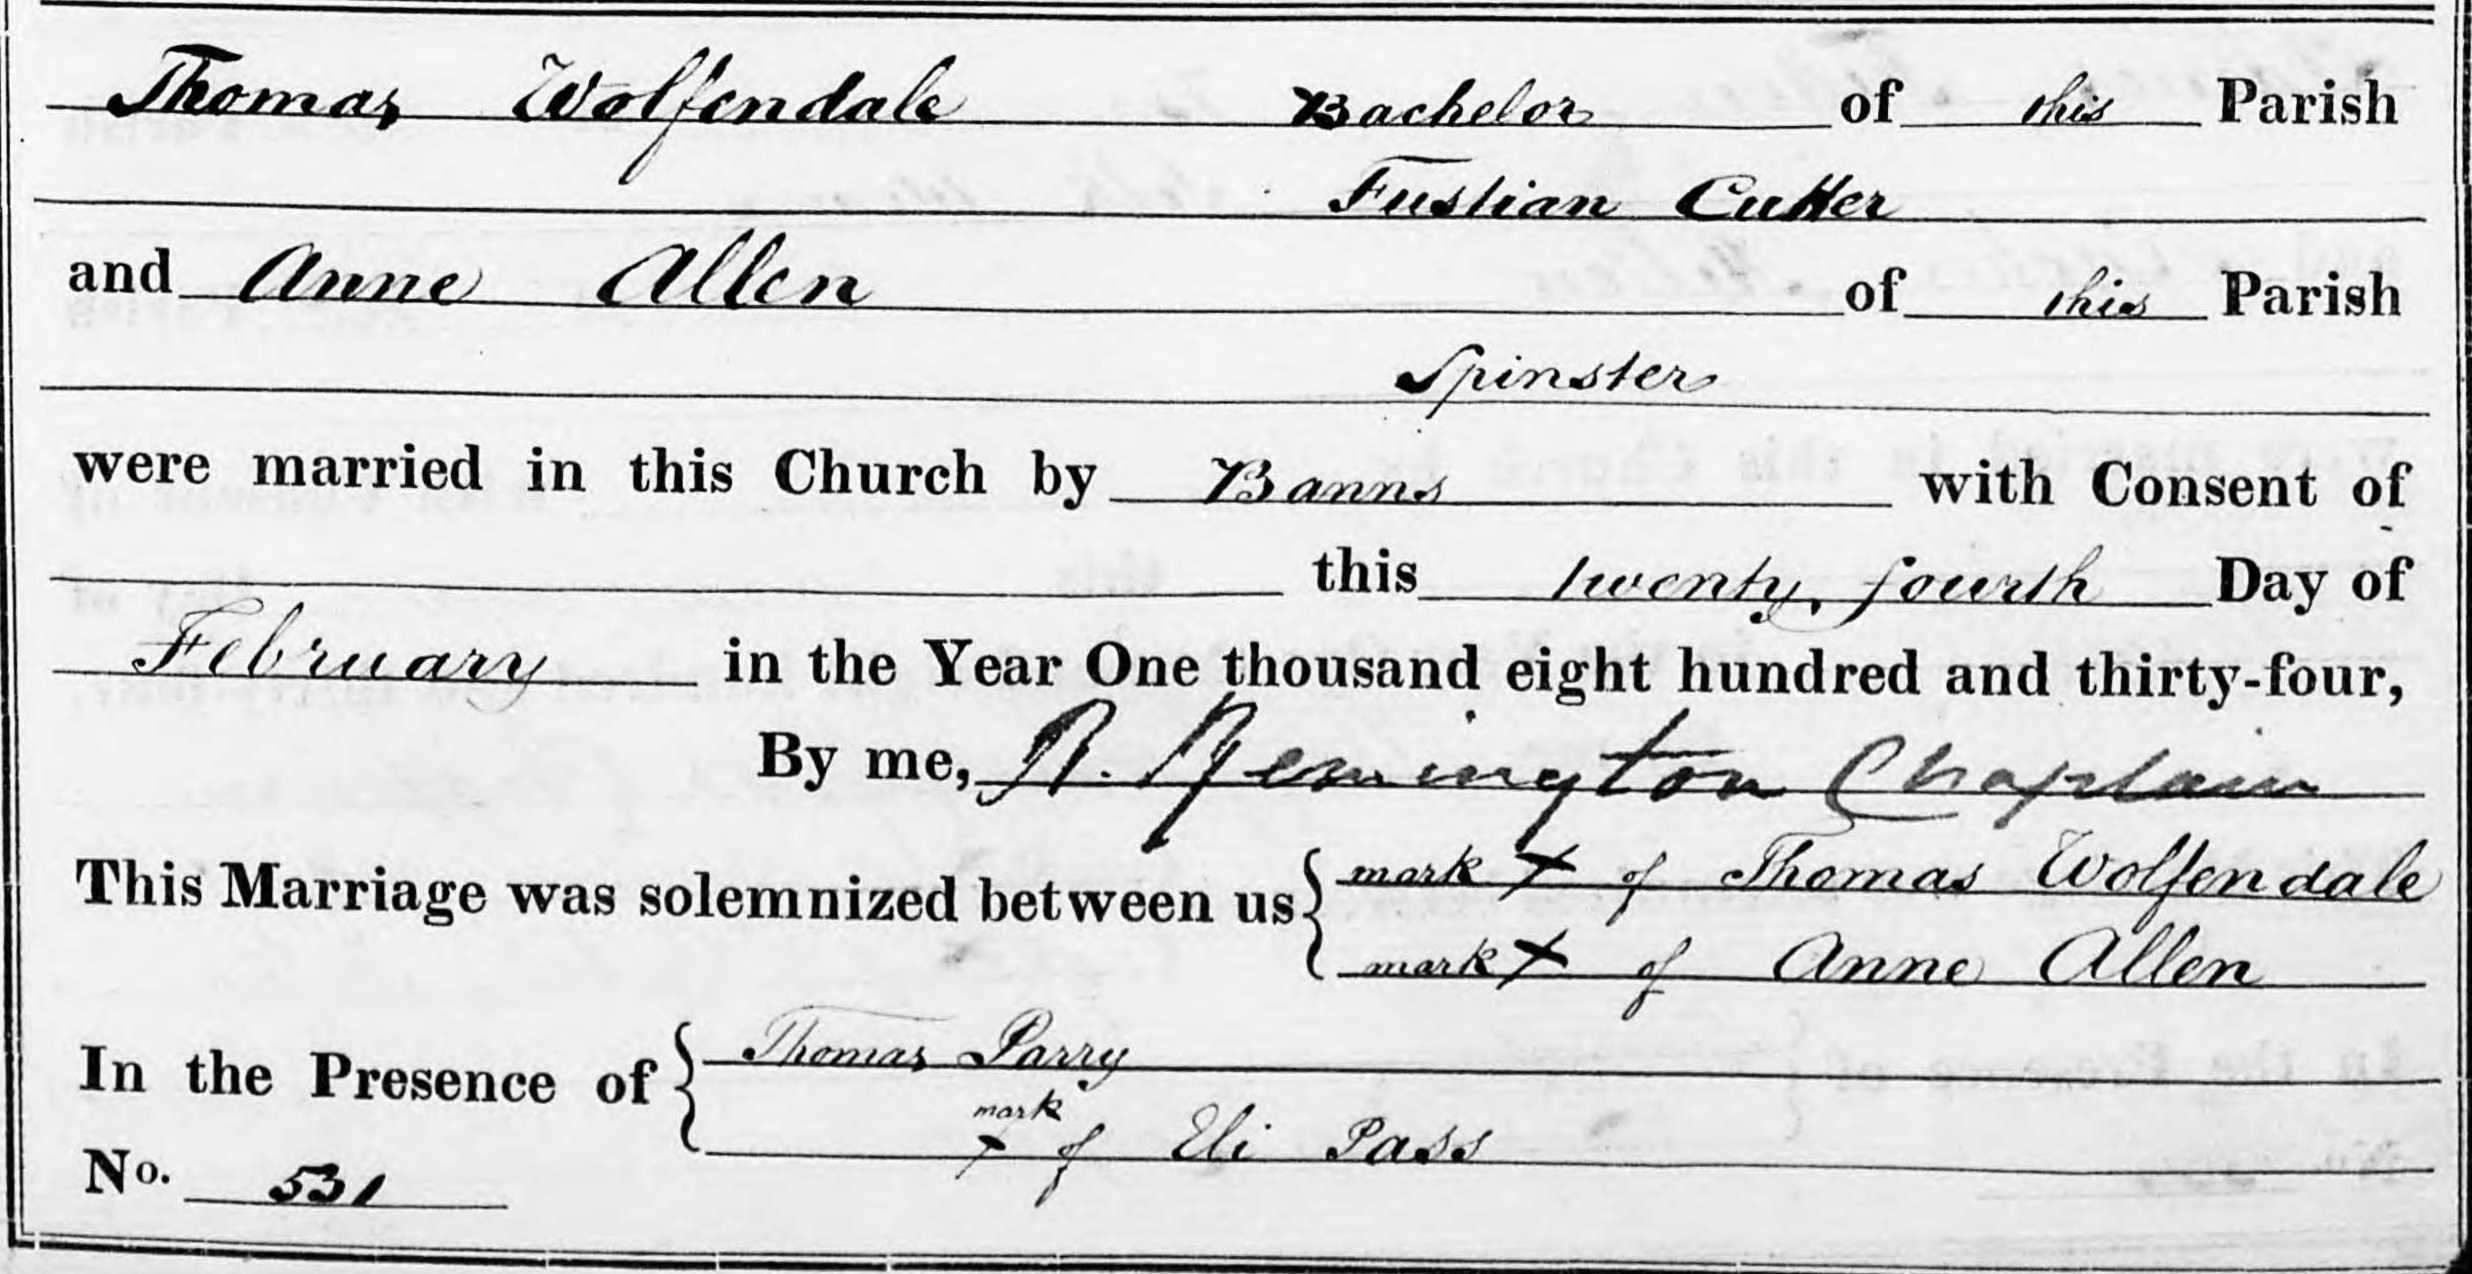 Thomas Wolfendale Bachelor of this Parish
Fustian Cutter
and Anne Allen of this Parish
Spinster
were married in this Church by Banns with Consent of
this twenty fourth Day of
February in the Year One thousand eight hundred and thirty-four,
By me, R. Remington Chaplain
This Marriage was solemnized between us { mark X of Thomas Wolfendale
mark X of Anne Allen
In the Presence of { Thomas Parry
mark
X of Eli Pass
No. 531